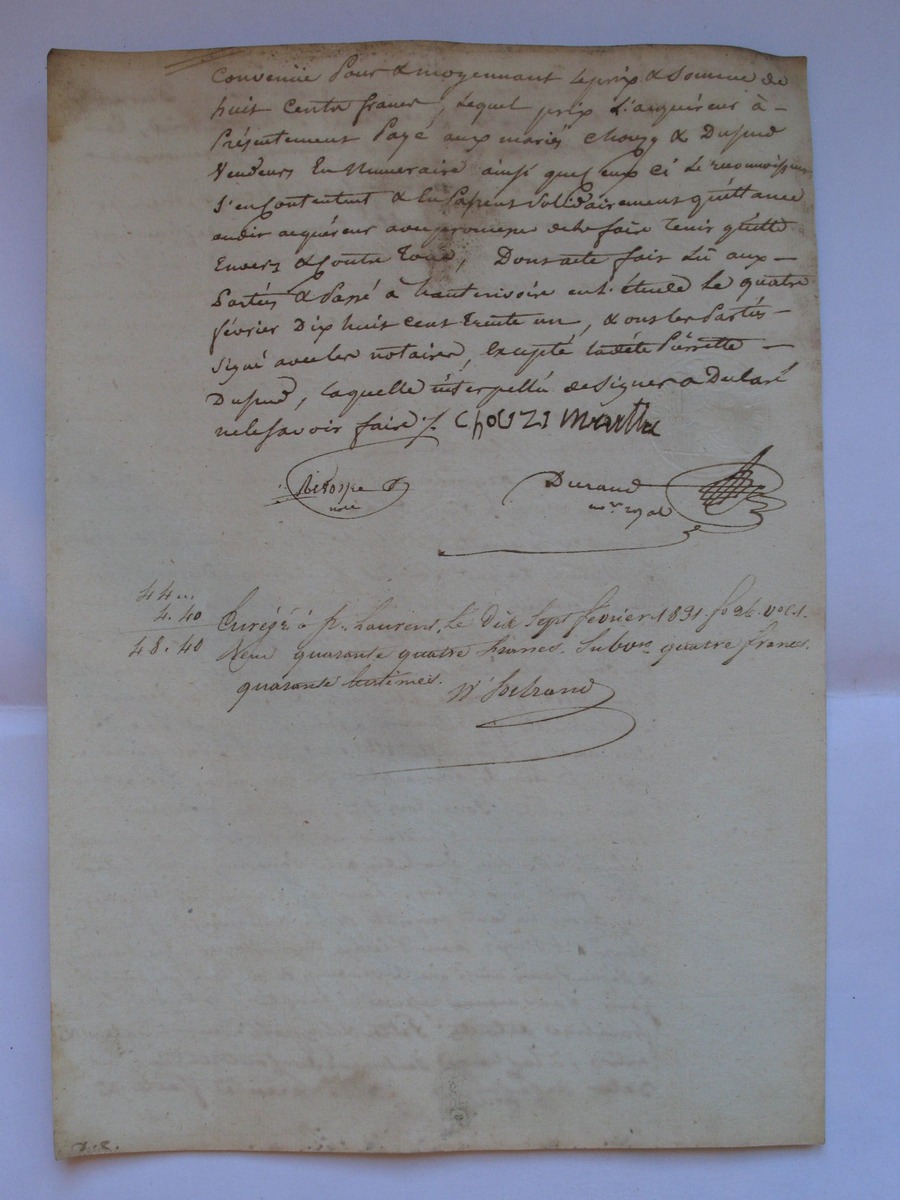 Convenüe Pour & moyennant Le prix & Somme de
huit Cents francs, Lequel prix L'acquéreur à -
Présentement Payé aux mariés Chouzy & Dupud
Vendeurs En Numeraire ainsi que eux ci Le reconnoissent
S'en Contentent & En Passent Solidairement quittance
audit acquéreur avec promesse de le faire tenir quitte
Envers & Contre Tous, Dont acte fait Lü aux -
Parties & Passé à hauterivoire en L'étude Le quatre
février Dix huit cent trente un, & ont les Parties -
Signé avec les notaires, Excepté ladite Pierrette -
Dupud, Laquelle interpellée de Signer a Déclaré
ne le Savoir faire ./.
Chouzi Marthe
Durand
nre royal
44...
4.40
48.40
Enregé à St Laurent, Le Dix Sept février 1831. fo 26. vo c. 1.
Reçu quarante quatre francs. Subon quatre francs.
quarante Centimes.